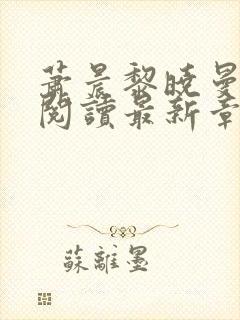 萧晨黎晓曼
阅讀最新章
蘇離墨